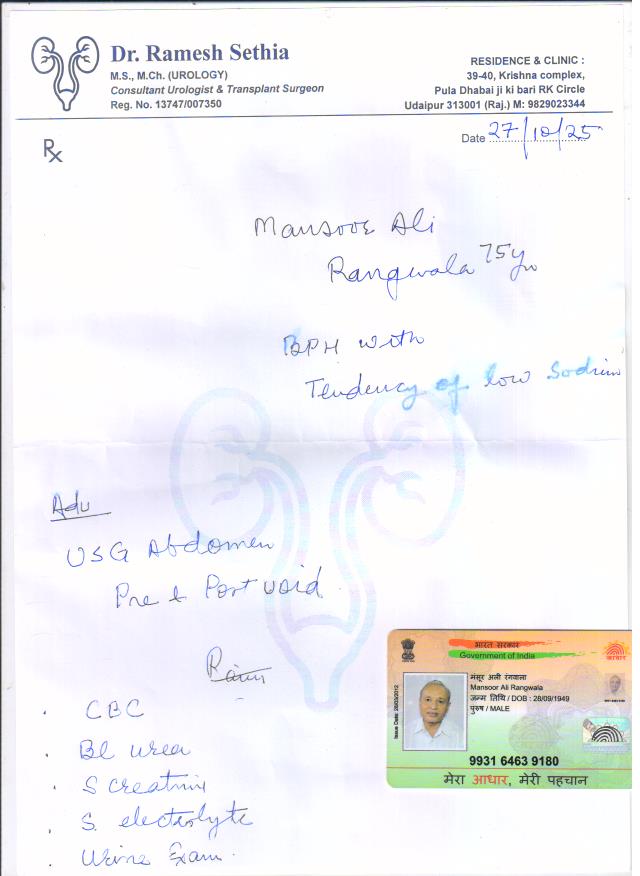 Dr. Ramesh Sethia
M.S., M.Ch. (UROLOGY)
Consultant Urologist & Transplant Surgeon
Reg. No. 13747/007350
RESIDENCE & CLINIC :
39-40, Krishna complex,
Pula Dhabai ji ki bari RK Circle
Udaipur 313001 (Raj.) M: 9829023344
Rx
Date 27/10/25
Mansoor Ali
Rangwala 75yr
BPH with
Tendency of low Sodium
Adv
USG Abdomen
Pre & Post void
CBC
Bl urea
S creatini
S. electrolyte
Urine Exam
भारत सरकार
Government of India
आधार
मंसूर अली रंगवाला
Mansoor Ali Rangwala
जन्म तिथि / DOB : 28/09/1949
पुरुष / MALE
9931 6463 9180
मेरा आधार, मेरी पहचान